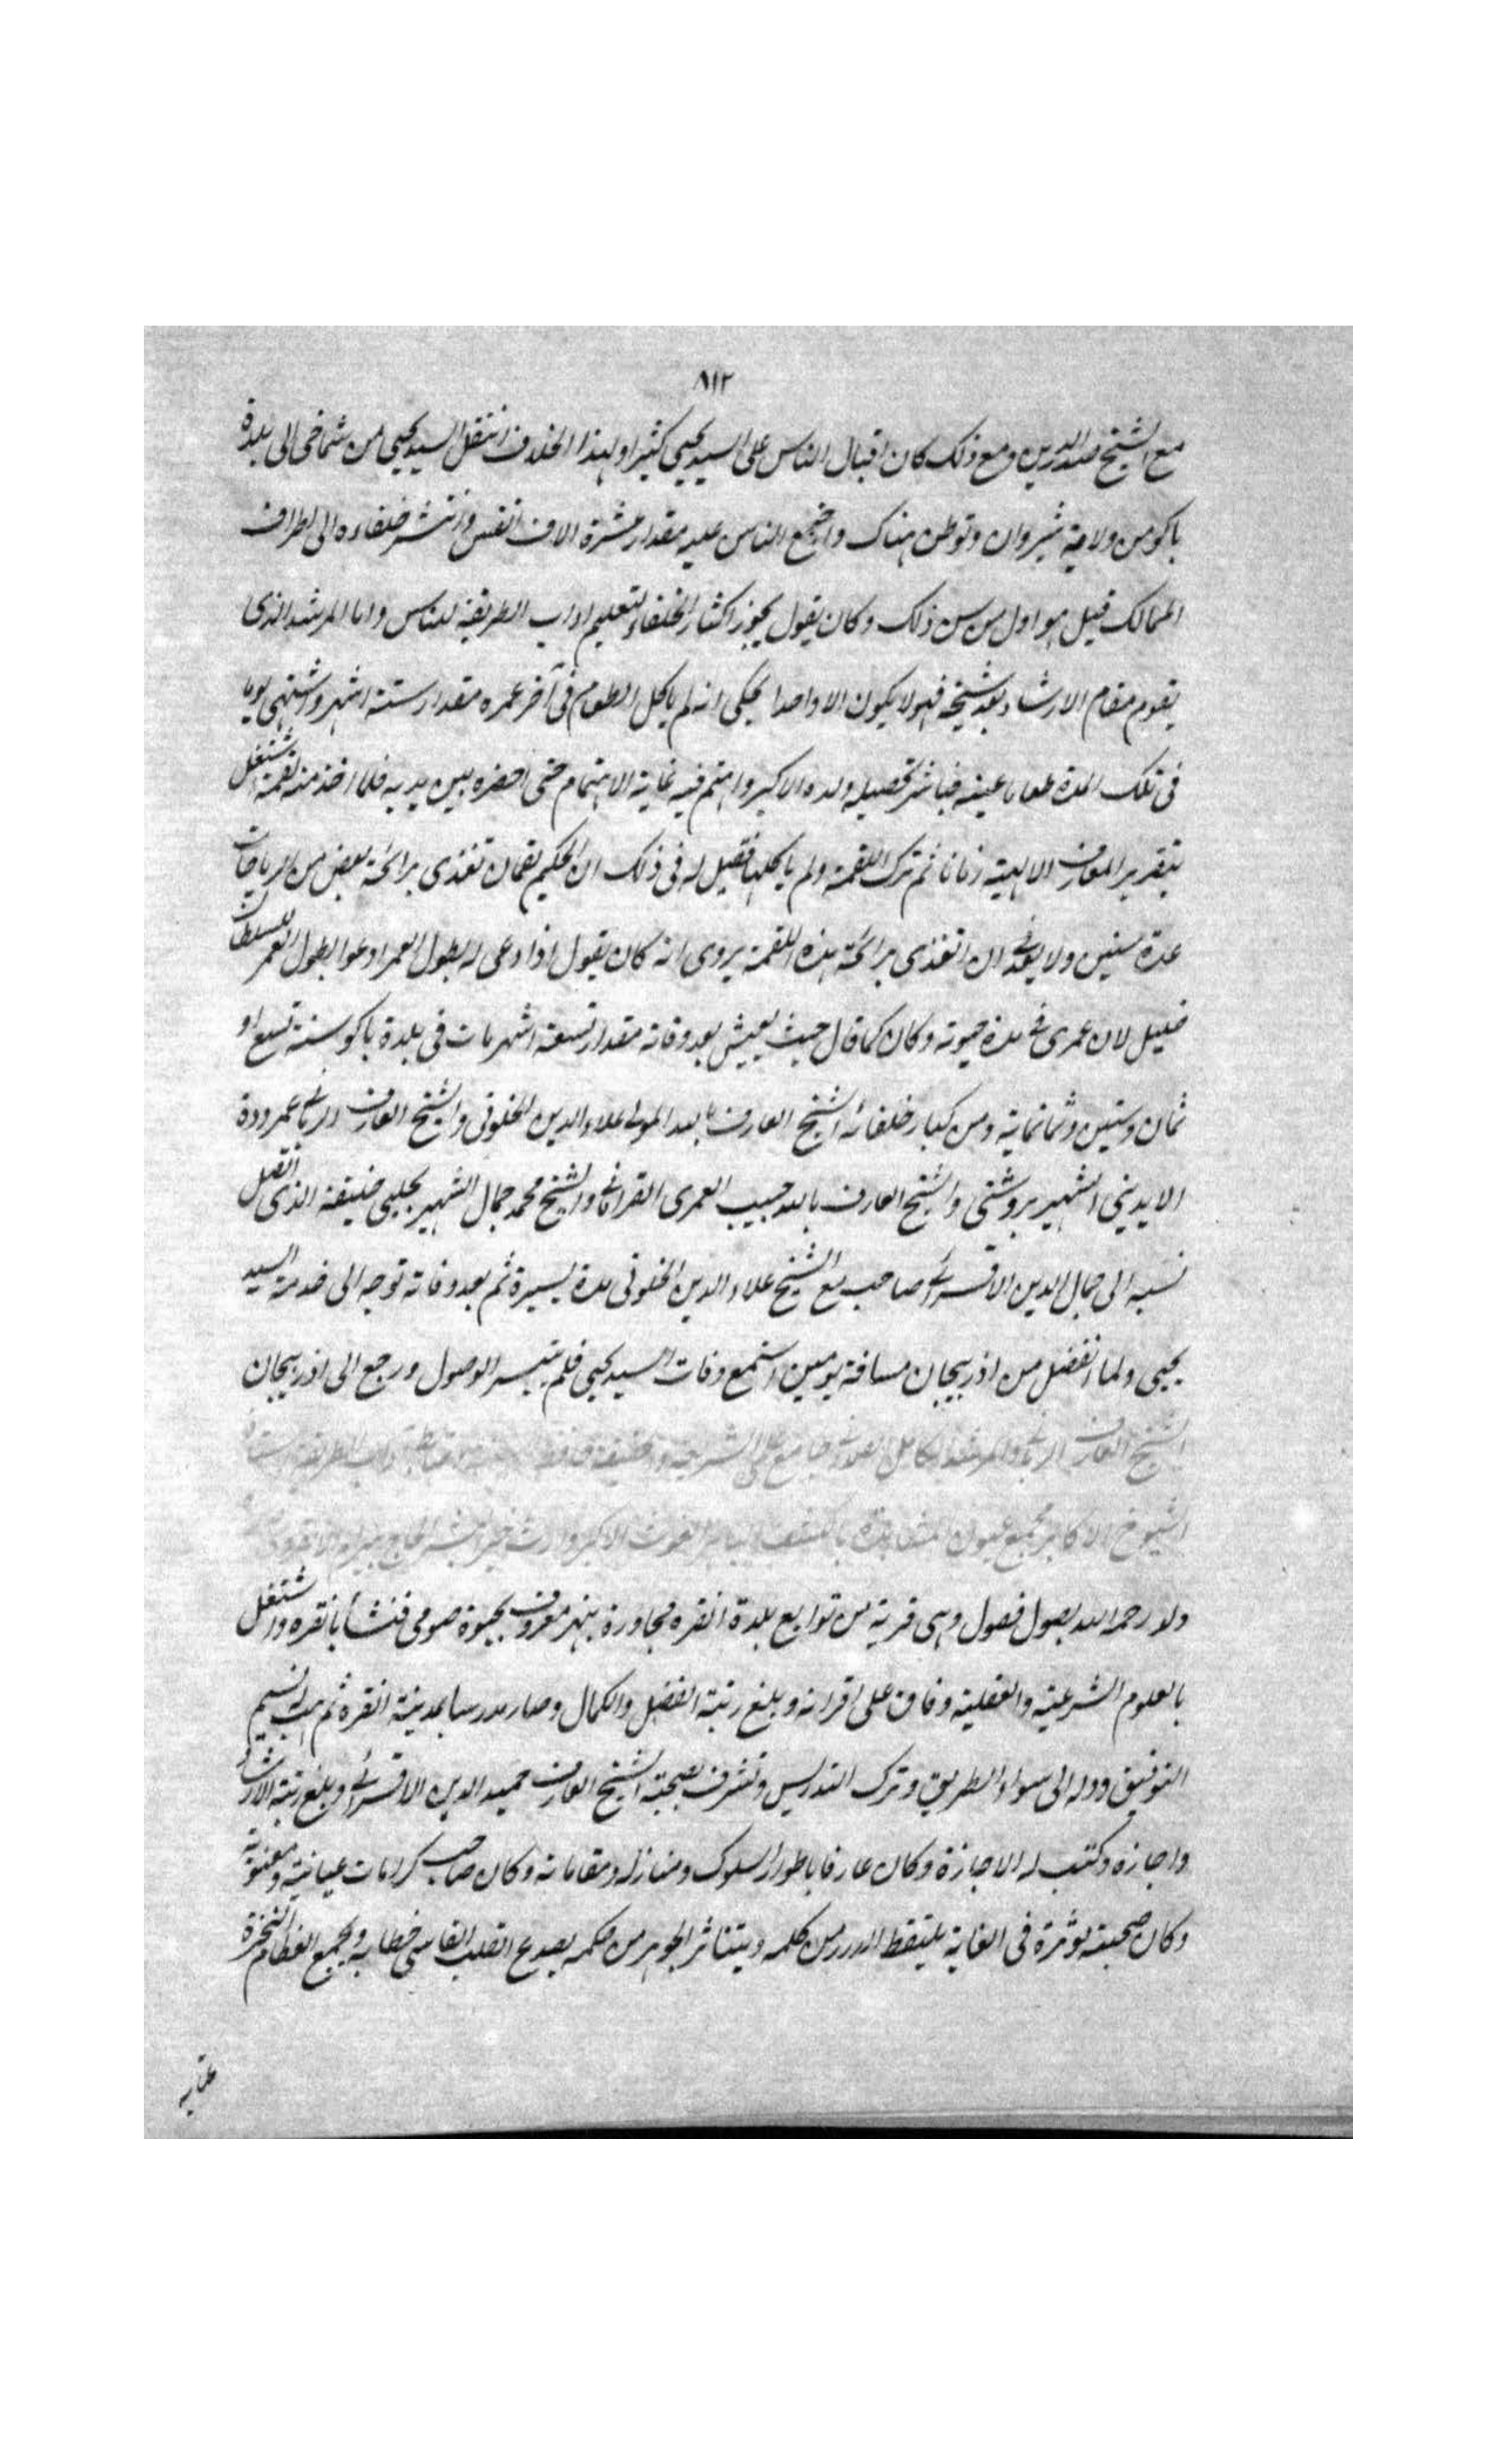 ٨١٢
مع الشيخ صدر الدين ومع ذلك كان اقبال الناس على السيد يحيى كثيرا ولهذا الخلاف انتقل السيد يحيى من شماخى الى بلدة
باكو من ولاية شيروان وتوطن هناك واجتمع الناس عليه مقدار عشرة الاف انفس وانتشر خلفاءه الى اطراف
الممالك قيل هو اول من سن ذلك وكان يقول يجوز اكثار الخلفاء لتعليم اداب الطريقة للناس واما المرشد الذى
يقوم مقام الارشاد بعد شيخه فهو لا يكون الا واحدا يحكى انه لم ياكل الطعام فى آخر عمره مقدار ستة اشهر واشتهى يوما
فى تلك المدة طعاما عينه فباشر لتحصيله ولده الاكبر واهتم فيه غاية الاهتمام حتى احضره بين يديه فلما اخذ منه لقمة اشتغل
بتقرير المعارف الالهية زمانا ثم ترك اللقمة ولم ياكلها فقيل له فى ذلك ان الحكيم لقمان تغذى برائحة بعض من الترياقات
عدة سنين ولا بعد فى ان اتغذى برائحة هذه اللقمة يروى انه كان يقول اذا دعى له بطول العمر ادعوا بطول العمر للسلطان
خليل لان عمرى فى مدة حيوته وكان كما قال حيث يعيش بعد وفاته مقدار تسعة اشهر مات فى بلدة باكو سنة تسع او
ثمان وستين وثمانمائة ومن كبار خلفائه الشيخ العارف بالله المولى علاء الدين الخلوتى والشيخ العارف الربانى عمر دده
الايدينى الشهير بروشنى والشيخ العارف بالله حبيب العمرى القرامانى والشيخ محمد جمال الشهير بجلبى خليفة الذى اتصل
نسبه الى جمال الدين الاقسرائى صاحب مع الشيخ علاء الدين الخلوتى مدة يسيرة ثم بعد وفاته توجه الى خدمة السيد
يحيى ولما انفصل من اذربيجان مسافة يومين استمع وفات السيد يحيى فلم يتيسر الوصول ورجع الى اذربيجان
الشيخ العارف الربانى والمرشد الكامل الصمدانى جامع علمى الشريعة والحقيقة اداب الطريقة
الشيوخ الاكابر مجمع عيون المشاهدة بالكشف الغوث الاكبر وارث خير البشر الحاج بيرام الانقروى
ولد رحمه الله بصول فصول وهى قرية من توابع بلدة انقره مجاورة بنهر معروف بجبوة صومى فنشأ بانقره واشتغل
بالعلوم الشرعية والعقلية وفاق على اقرانه وبلغ رتبة الفضل والكمال وصار مدرسا بمدينة انقره ثم هب نسيم
التوفيق ودله الى سواء الطريق وترك التدريس وتشرف بصحبة الشيخ العارف حميد الدين الاقسرائى وبلغ رتبة الارشاد
واجازه وكتب له الاجازة وكان عارفا باطوار السلوك ومنازله ومقاماته وكان صاحب كرامات عيانية ومعنوية
وكان صحبته مؤثرة فى الغاية يلتقط الدرر من كلمه ويتناثر الجوهر من حكمه يصدع القلب القاسى خطابه ويجمع العظام النخرة
عتابه